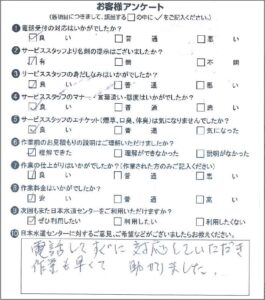 お客様アンケート
(各項目につきまして、該当する□の中に✓をご記入ください。)
❶電話受付の対応はいかがでしたか?
☑良い □普通 □悪い
❷サービススタッフより名刺の提示はございましたか?
☑有 □無 □不明
❸サービススタッフの身だしなみはいかがでしたか?
☑良い □普通 □悪い
❹サービススタッフのマナー・言葲遣い・態度はいかがでしたか?
☑良い □普通 □悪い
❺サービススタッフのエチケット(煙草、口臭、体臭)は気になりませんでしたか?
☑良い □普通 □気になった
❻作業前のお見積もりの説明はご理解いただけましたか?
☑理解できた □理解ができなかった □説明がなかった
❼作業の仕上がりはいかがでしたか?(作業された方のみご記入ください)
☑良い □普通 □悪い
❽作業料金はいかがでしたか?
☑安い □普通 □高い
❾次回も又日本水道センターをご利用いただけますか?
☑ぜひ利用したい □利用したい □利用したくない
❿日本水道センターに対するご意見、ご希望などがございましたらお教えください。
電話してすぐに対応していただき
作業も早くて 助かりました.